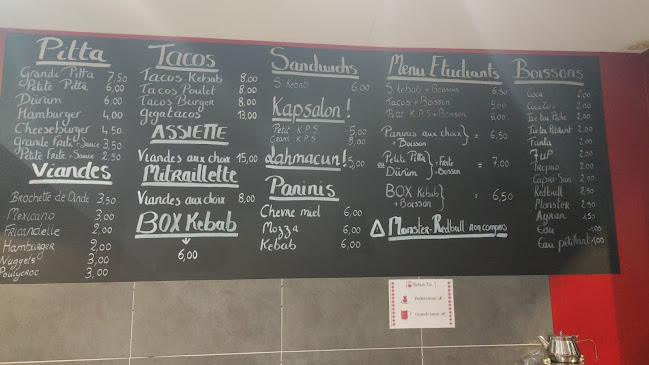 Pitta
Grande Pitta 7,50
Petite Pitta 6,00
Dürum 6,00
Hamburger 4,00
Cheeseburger 4,50
Grande Frite + Sauce 3,50
Petite Frite + Sauce 2,50
Viandes
Brochette de Dinde 3,50
Mexicano 3,00
Fricandelle 2,00
Hamburger 2,00
Nuggets 3,00
Poulycroc 3,00
Tacos
Tacos Kebab 8,00
Tacos Poulet 8,00
Tacos Burger 8,00
Gigatacos 13,00
ASSIETTE
Viandes aux choix 15,00
Mitraillette
Viandes aux choix 8,00
BOX Kebab
6,00
Sandwichs
S Kebab 6,00
Kapsalon!
Petit K.P.S 5,00
Grand K.P.S 8,00
Lahmacun! 5,00
Paninis
Chevre miel 6,00
Mozza 6,00
Kebab 6,00
Menu Etudiants
S Kebab + Boissons 6,50
Tacos + Boisson 9,00
Petit K.P.S + Boisson 6,00
Paninis aux choix + Boisson = 6,50
ou Petits Pitta
Dürum + Frite + Boisson = 7,00
BOX Kebab + Boisson = 6,50
Monster-Redbull non compris
Boissons
Coca 2,00
Coca Zero 2,00
Ice tea Pêche 2,00
Ice tea Pétillant 2,00
Fanta 2,00
7UP 2,00
Tropico 2,00
Capri-Sun 2,00
Redbull 2,50
Monster 2,50
Ayran 1,50
Eau 1,00
Eau pétillant 1,00